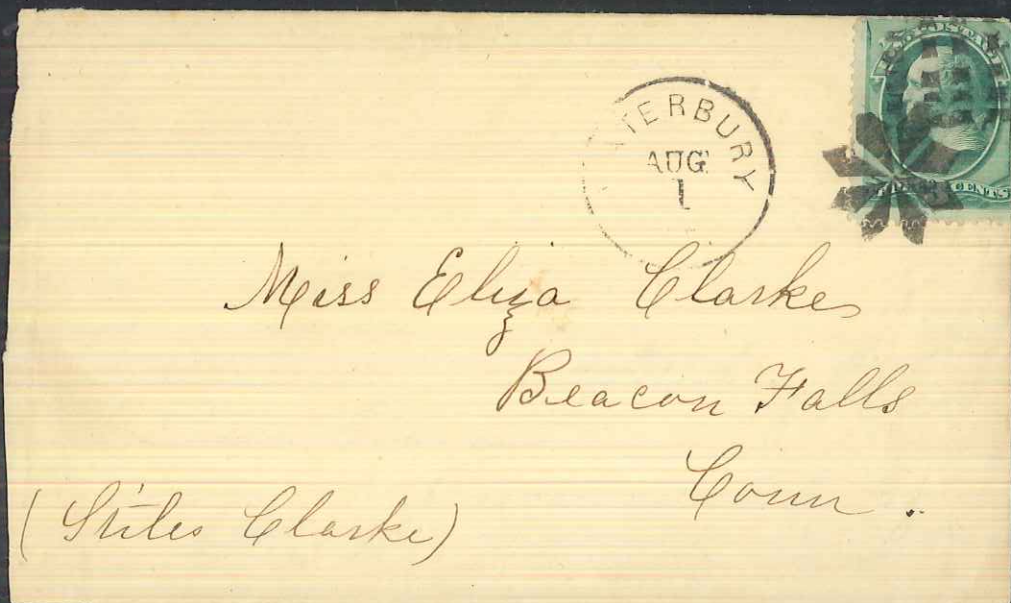 TERBURY
AUG
1
CENTS
Miss Eliza Clarke
Beacon Falls
Conn.
(Stiles Clarke)